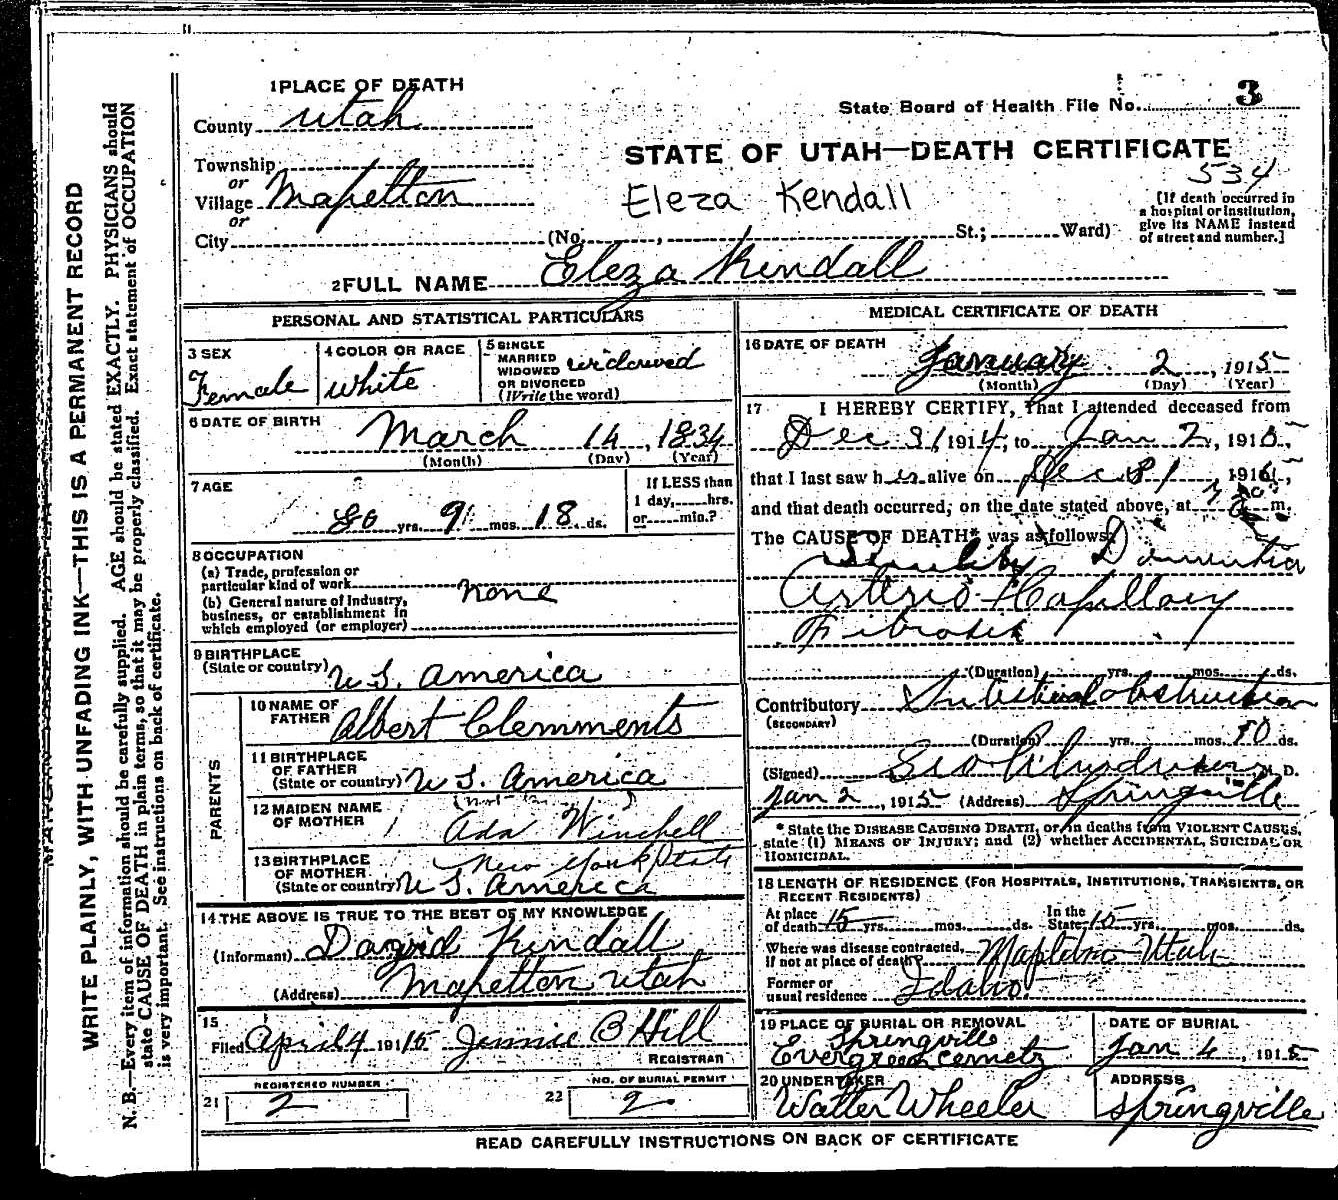 1 PLACE OF DEATH
State Board of Health File No. 3
County Utah
STATE OF UTAH—DEATH CERTIFICATE
534
Township
or
Village Mapelton
or
City
Eleza Kendall
(No. , St.; Ward)
[If death occurred in
a hospital or institution,
give its NAME instead
of street and number.]
2 FULL NAME Eleza Kendall
PERSONAL AND STATISTICAL PARTICULARS
3 SEX
Female
4 COLOR OR RACE
White
5 SINGLE
MARRIED
WIDOWED
OR DIVORCED
(Write the word)
widowed
6 DATE OF BIRTH
March 14, 1834
(Month) (Day) (Year)
7 AGE
80 yrs. 9 mos. 18 ds.
If LESS than
1 day, hrs.
or min.?
8 OCCUPATION
(a) Trade, profession or
particular kind of work
none
(b) General nature of Industry,
business, or establishment in
which employed (or employer)
9 BIRTHPLACE
(State or country) U S. America
PARENTS
10 NAME OF
FATHER Albert Clemments
11 BIRTHPLACE
OF FATHER
(State or country) U S. America
12 MAIDEN NAME
OF MOTHER Ada Winchell
13 BIRTHPLACE
OF MOTHER
(State or country) New York State
U S. America
14 THE ABOVE IS TRUE TO THE BEST OF MY KNOWLEDGE
(Informant) David Kendall
(Address) Mapelton Utah
15
Filed April 4 1915 Jennie B Hill
REGISTRAR
REGISTERED NUMBER
21 2
NO. OF BURIAL PERMIT
22 2
MEDICAL CERTIFICATE OF DEATH
16 DATE OF DEATH
January 2, 1915
(Month) (Day) (Year)
17 I HEREBY CERTIFY, That I attended deceased from
Dec 31 1914, to Jan 2, 1915,
that I last saw her alive on Dec 31 191
and that death occurred, on the date stated above, at m.
The CAUSE OF DEATH* was as follows:
Senility Dementia
Arterio-Capillary
Fibrosis
(Duration) yrs. mos. ds.
Contributory Intestinal obstruction
(SECONDARY)
(Duration) yrs. mos. 10 ds.
(Signed) Geo M. D.
Jan 2, 1915 (Address) Springville
* State the DISEASE CAUSING DEATH, or, in deaths from VIOLENT CAUSES,
state (1) MEANS OF INJURY; and (2) whether ACCIDENTAL, SUICIDAL OR
HOMICIDAL.
18 LENGTH OF RESIDENCE (FOR HOSPITALS, INSTITUTIONS, TRANSIENTS, OR
RECENT RESIDENTS)
At place
of death 15 yrs. mos. ds.
In the
State 15 yrs. mos. ds.
Where was disease contracted,
if not at place of death? Mapleton Utah
Former or
usual residence Idaho.
19 PLACE OF BURIAL OR REMOVAL
Springville
Evergreen cemetz
DATE OF BURIAL
Jan 4, 1915
20 UNDERTAKER
Walter Wheeler
ADDRESS
Springville
READ CAREFULLY INSTRUCTIONS ON BACK OF CERTIFICATE
WRITE PLAINLY, WITH UNFADING INK—THIS IS A PERMANENT RECORD
N. B.—Every item of information should be carefully supplied. AGE should be stated EXACTLY. PHYSICIANS should
state CAUSE OF DEATH in plain terms, so that it may be properly classified. Exact statement of OCCUPATION
is very important. See instructions on back of certificate.